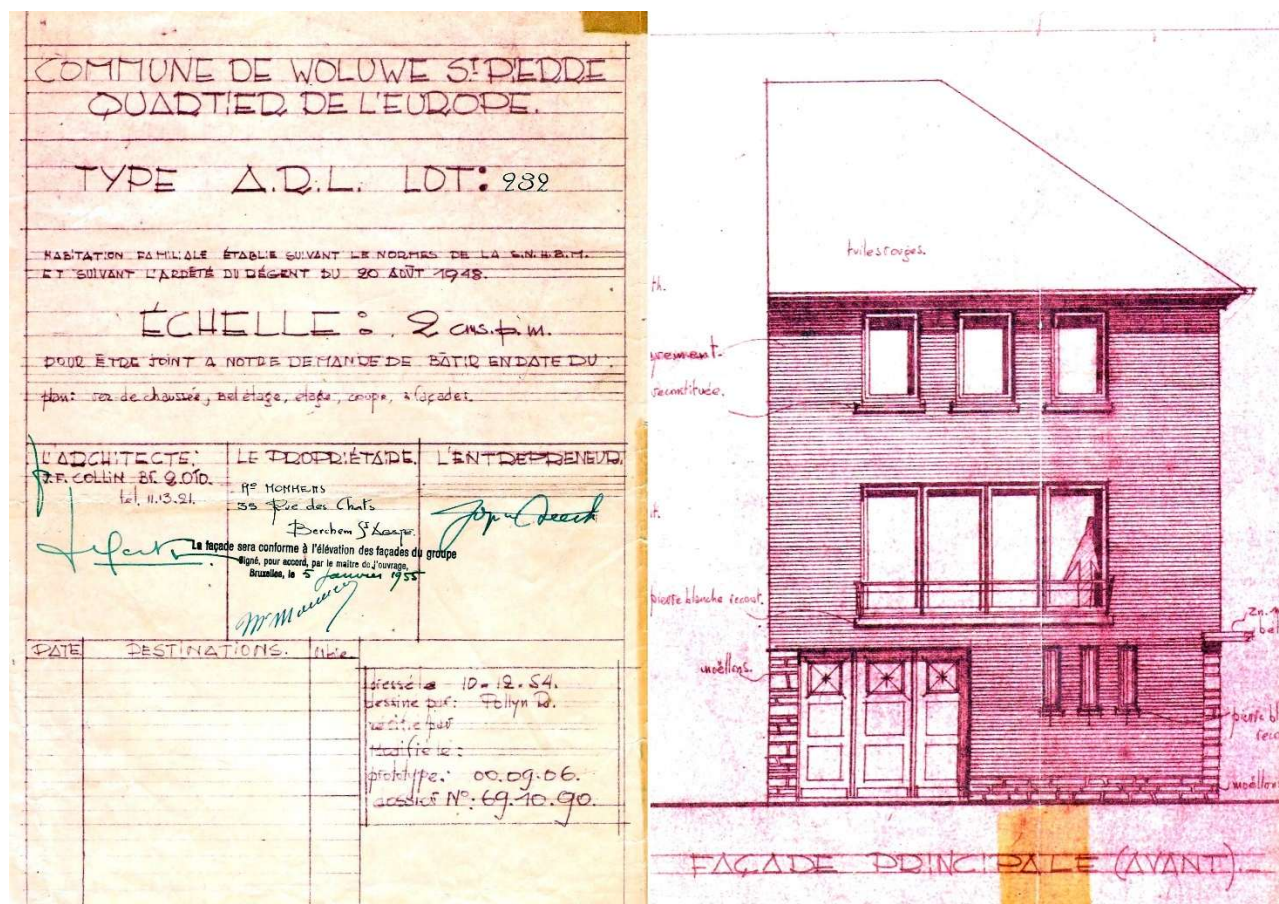 COMMUNE DE WOLUWE ST PIERRE
QUARTIER DE L'EUROPE.
TYPE A.R.L. LOT: 232
HABITATION FAMILIALE ÉTABLIE SUIVANT LE NORMES DE LA S.N.H.B.M.
ET SUIVANT L'ARRÊTÉ DU RÉGENT DU 20 AOÛT 1948.
ÉCHELLE: 2 cms.p.m.
POUR ÊTRE JOINT A NOTRE DEMANDE DE BÂTIR EN DATE DU :
plan: rez de chaussée, bel étage, étage, coupe, 2 façades.
L'ARCHITECTE:
J.F. COLLIN
tel. 11.13.21.
LE PROPRIÉTAIRE.
Mr MOMMENS
33 Rue des Chats
Berchem St
L'ENTREPRENEUR.
La façade sera conforme à l'élévation des façades du groupe
Signé, pour accord, par le maître de l'ouvrage,
Bruxelles, le 5 Janvier 1955
DATE DESTINATIONS.
dressé le 10-12-54.
dessiné par:
vérifié par
modifié le:
prototype: 00.09.06.
dossier N°: 69.10.90.
tuiles rouges.
th.
rement.
reconstituée.
t.
pierre blanche reconst.
moëllons.
Zn.
be
pierre bl
reco
moëllon
FAÇADE PRINCIPALE (AVANT).